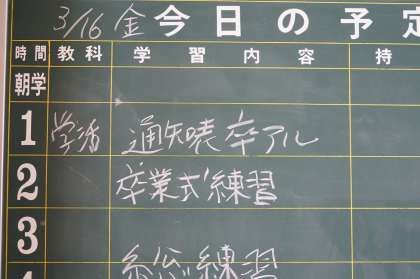 3/16 金 今日の予定
時間 教科 学習内容 持
朝学
1 学活 通知表 卒アル
2 卒業式練習
3
総練習